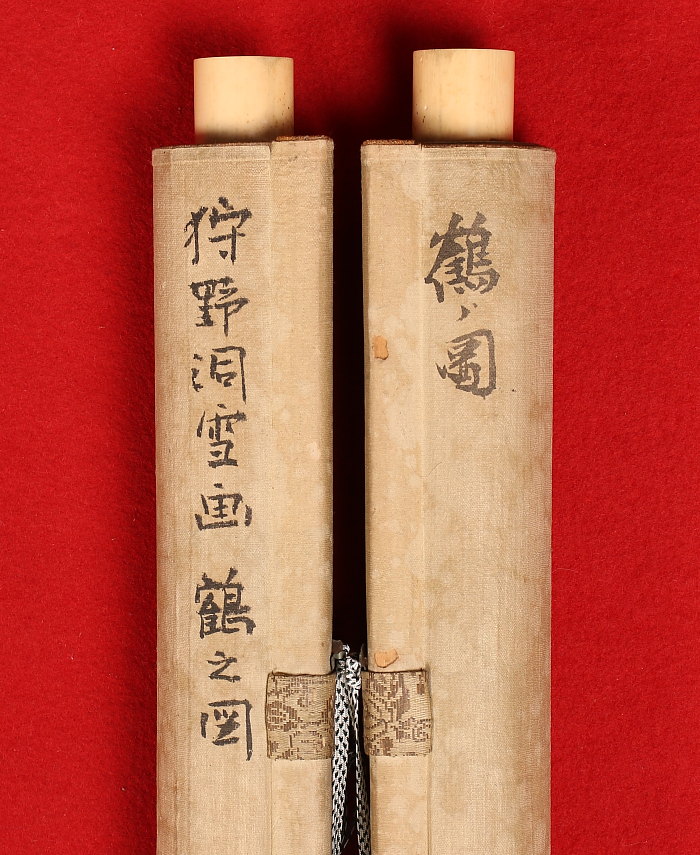 鶴ノ圖
狩野洞雪画 鶴之図